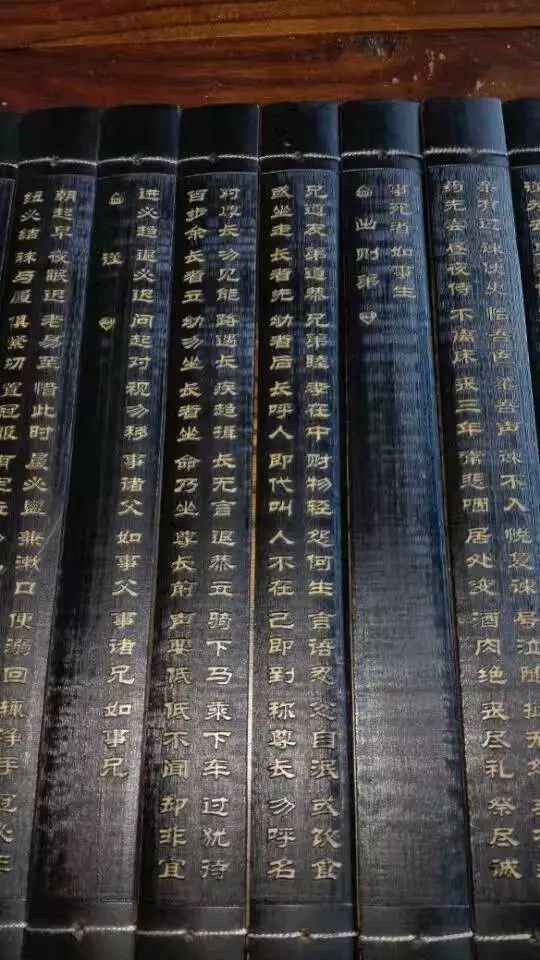 亲有过谏使更怡吾色柔吾声谏不入悦复谏号泣随挞无怨
药先尝昼夜侍不离床丧三年常悲咽居处变酒肉绝丧尽礼祭尽诚
事死者如事生
出则弟
兄道友弟道恭兄弟睦孝在中财物轻怨何生言语忍忿自泯或饮食
或坐走长者先幼者后长呼人即代叫人不在己即到称尊长勿呼名
对尊长勿见能路遇长疾趋揖长无言退恭立骑下马乘下车过犹待
百步余长者立幼勿坐长者坐命乃坐尊长前声要低低不闻却非宜
进必趋退必迟问起对视勿移事诸父如事父事诸兄如事兄
谨
朝起早夜眠迟老易至惜此时晨必盥兼漱口便溺回辄净手冠必正
纽必结袜与履俱紧切置冠服有定位